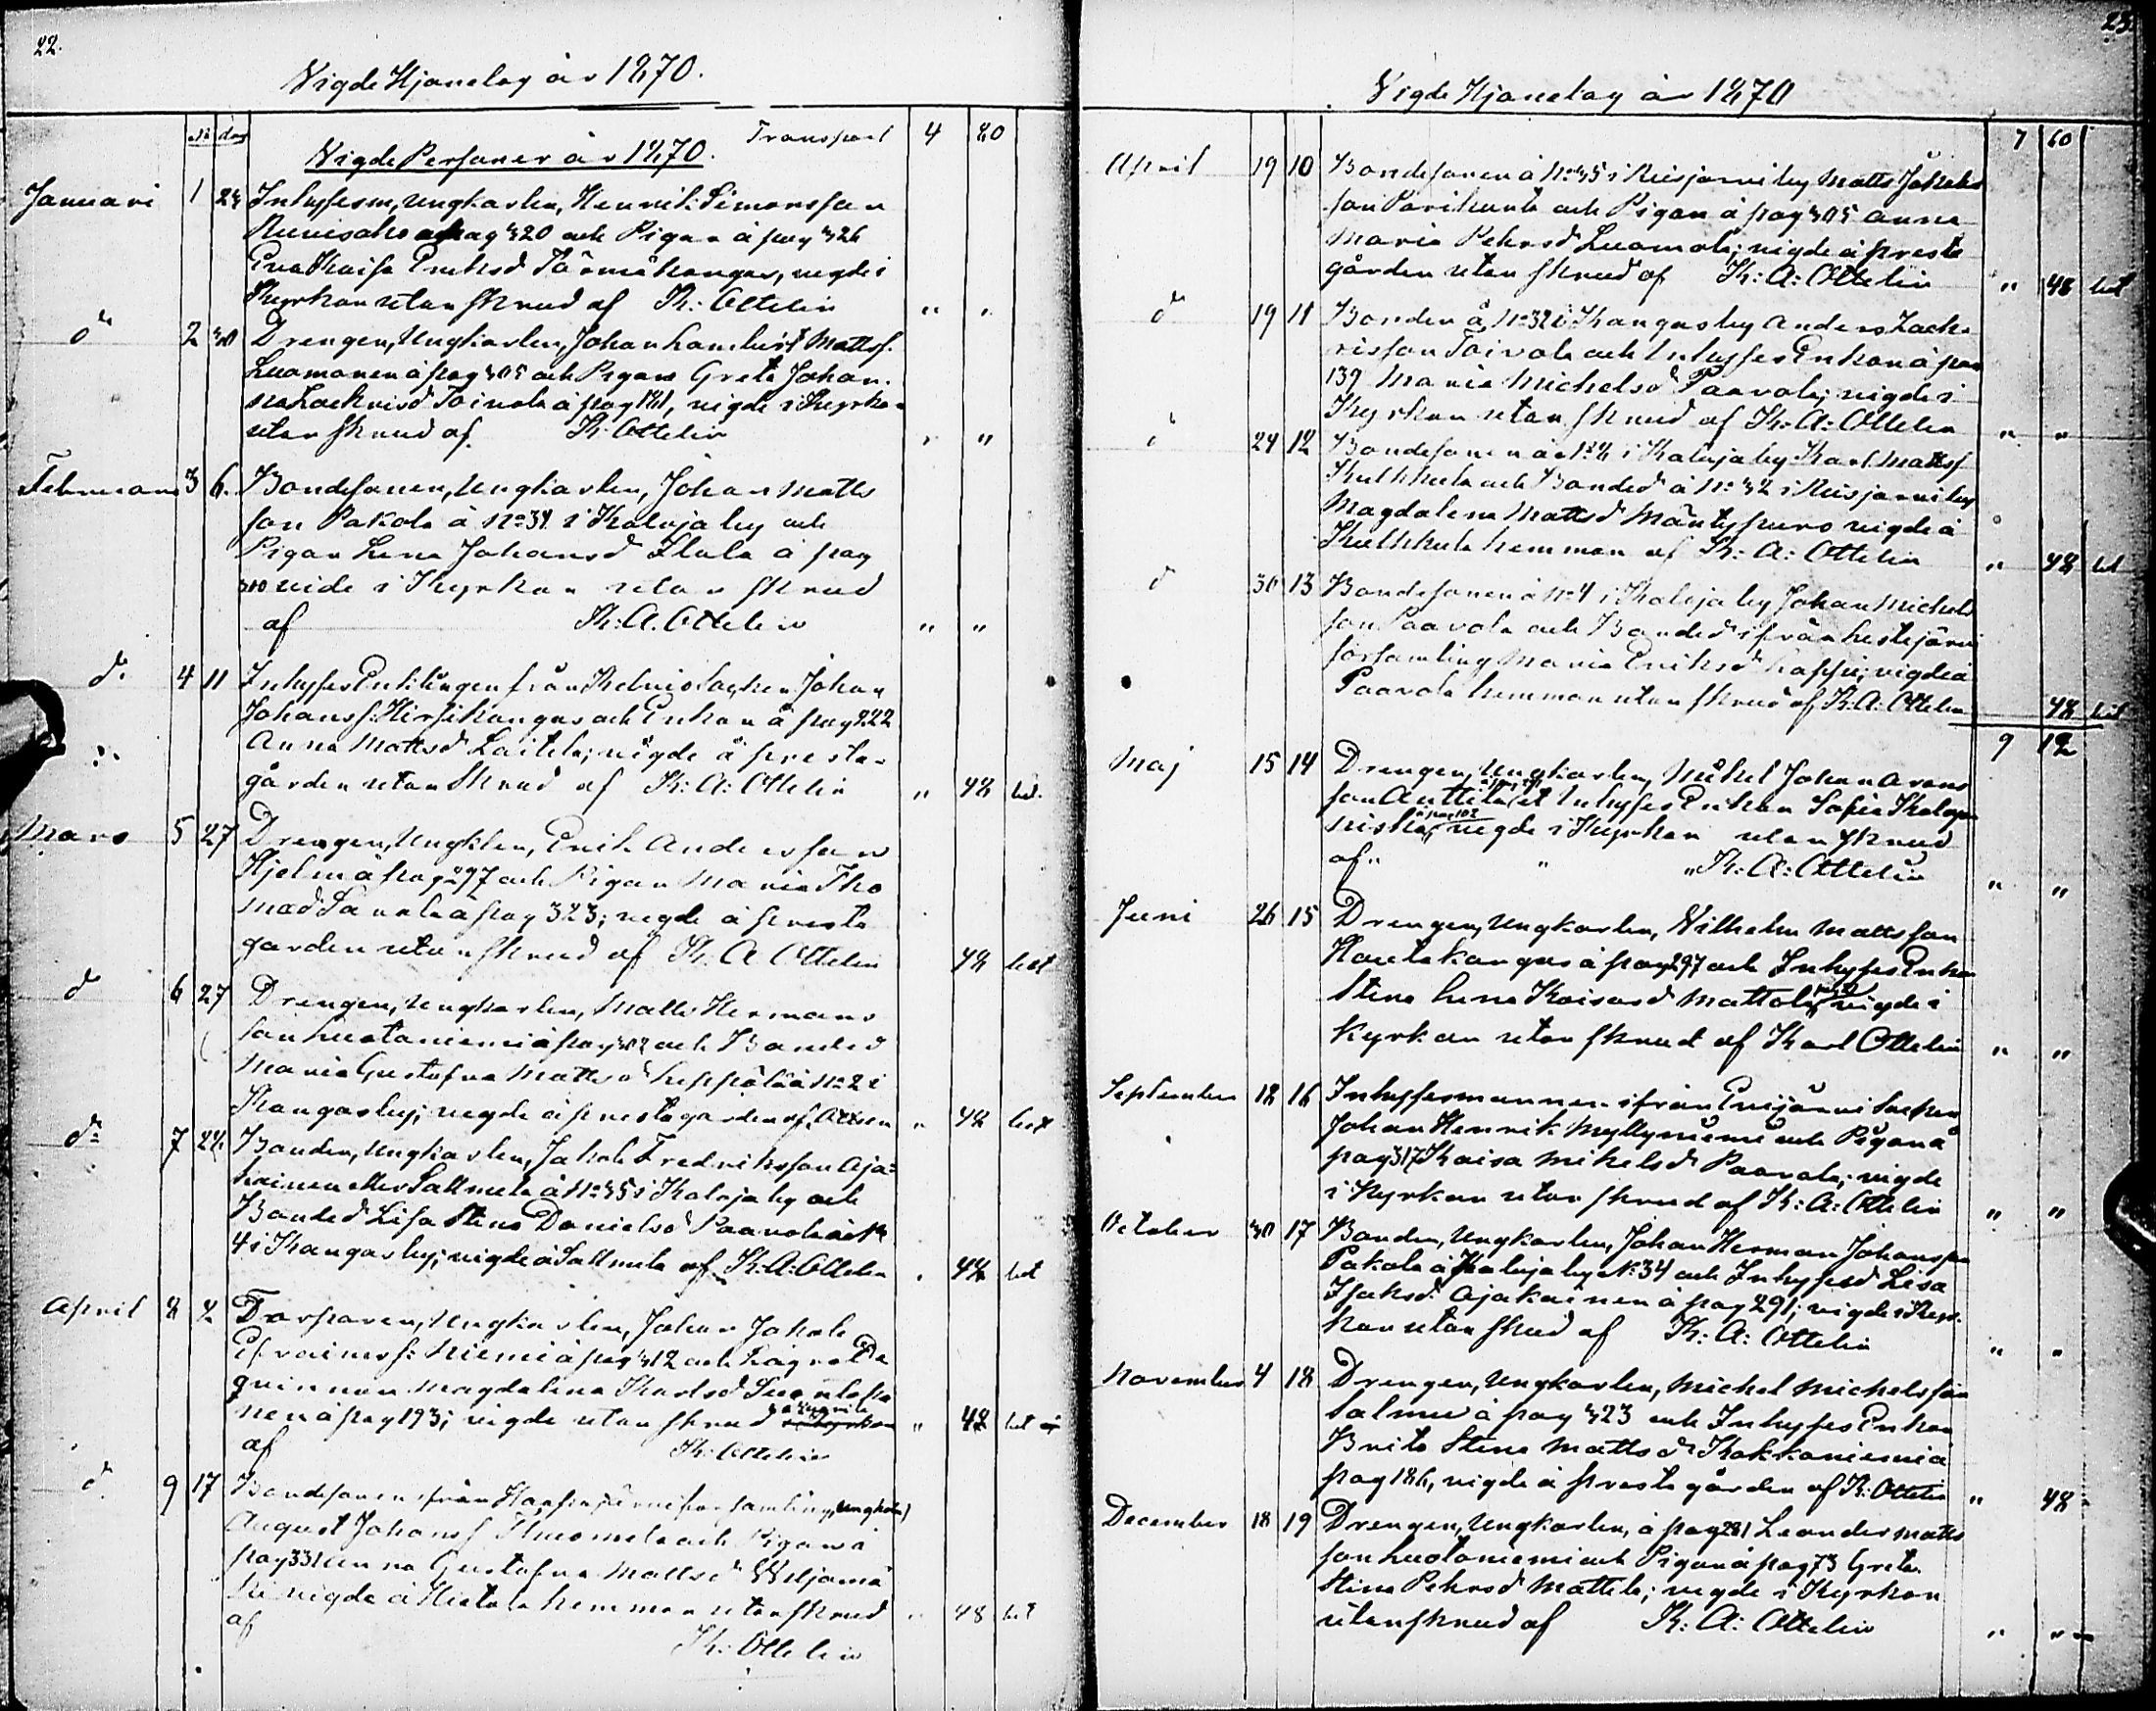 22.
Vigde Hjonelag år 1870.
No dag
Vigde Personer år 1870. Transport 4 80
Januari 1 23 Inhysesm, Ungkarlen, Henrik Simonsson
å pag 320 och Pigan å pag 326
Eva Kaisa Eriksd vigde i
Kyrkan utan skrud af K: Ottelin " "
do 2 30 Drengen, Ungkarlen, Johan Lambert Mattsf.
Luomanen å pag 305 och Pigan Greta Johan-
na Zachrisd Toivola å pag 181, vigde i Kyrkan
utan skrud af K: Ottelin " "
Februari 3 6. Bondesonen, Ungkarlen, Johan Matts
son Pakola å No 34 i Kalaja by och
Pigan Lena Johansd Ilula å pag
310 vide i Kyrkan utan skrud
af K: A. Ottelin " "
do 4 11 Inhyses Enklingen från Johan
Johansf: Hirsikangas och Enkan å pag 222
Anna Mattsd Laitila; vigde å preste-
gården utan Skrud af K: A: Ottelin " 48 bet.
Mars 5 27 Drengen, Ungklen, Erik Andersson
Hjelm å pag 297 och Pigan Maria Tho
masd å pag 323; vigde å preste
garden utan skrud af K. A Ottelin 48 bet
d 6 27 Drengen, Ungkarlen, Matts Hermans
son Luotoniemi å pag 302 och Bonded
Maria Gustafva Mattsd Leppälä å No 2 i
Kangas by; vigde å prestegarden af Ottelin " 48 bet
do 7 28. Bonden, Ungkarlen, Jakob Fredriksson Aja-
kainen eller Sallmela å No 35 i Kalaja by och
Bonded Lisa Stina Danielsd Paavola å No
4 i Kangas by; vigde å Sallmela af K: A: Ottelin . 48 bet
April 8 2 Torparen, Ungkarlen, Johan Jakob
Efraimsf: Niemi å pag 312 och
qvinnan Magdalena Karlsd
nen å pag 193; vigde utan skrud i Kyrkan " 48 bet
af K: Ottelin
d 9 17 Bondesonen från Haapajärvi församling, Ungkarl
August Johansf Tuomela och Pigan å
pag 331 Anna Gustafva Mattsd Viljamä
ki vigde å Hietala hemman utan skrud " 48 bet
af
K: Ottelin
23
Vigde Hjonelag år 1870
7 60
April 19 10 Bondesonen å No 35 i Reisjärvi by Matts Jakobs
son Parikanta och Pigan å pag 305 Anna
Maria Pehrsd Luomala; vigde å preste
gården utan skrud af K: A: Ottelin " 48 bet
d 19 11 Bonden å No 32 i Kangas by Anders Zach-
risson Toivola och Inhyses Enkan å pag
139 Maria Michelsd Paavola; vigde i
Kyrkan utan skrud af K: A: Ottelin " "
d 24 12 Bondesonen å No 6 i Kalaja by Karl Mattsf
Kulkkula och Bonded å No 32 i Reisjärvi by
Magdalena Mattsd Mäntypuro vigde å
Kulkkula hemman af K: A: Ottelin " 48 bet
d 30 13 Bondesonen å No 4 i Kalaja by Johan Michels
son Paavola och Bonded ifrån Lestijärvi
församling Maria Eriksd Kappi; vigde å
Paavola hemman utan skrud af K: A: Ottelin 48 bet
9 12
Maj 15 14 Drengen, Ungkarlen, Mikel Johan Arons
son Anttila et Inhyses Enkan Sofia
å pag 102
vigde i Kyrkan utan skrud
af " " " K: A: Ottelin " "
Juni 26 15 Drengen, Ungkarlen, Vilhelm Mattsson
Hautakangas å pag 297 och Inhyses Enkan
Stina Lena Kaisasd Mattola vigde i
Kyrkan utan skrud af Karl Ottelin " "
September 18 16 Inhysesmannen ifrån Evijärvi Socken
Johan Henrik Myllyniemi och Pigan å
pag 317 Kaisa Mikelsd Paavola; vigde
i Kyrkan utan skrud af K: A: Ottelin " "
October 30 17 Bonden, Ungkarlen, Johan Herman Johansson
Pakola å Kalaja by No 34 och Inhysesd Lisa
Isaksd. Ajakainen å pag 291; vigde i Kyr-
kan utan skrud af K: A: Ottelin " "
November 4 18 Drengen, Ungkarlen, Michel Michelsson
Salmu å pag 323 och Inhyses Enkan
Brita Stina Mattsd Kokkoniemi å
pag 186, vigde å prestegården af K: Ottelin " 48
December 18 19 Drengen, Ungkarlen, å pag 281 Leander Matts
son Luotoniemi och Pigan å pag 73 Greta
Stina Pehrsd Mattila; vigde i Kyrkan
utan skrud af K: A: Ottelin " "